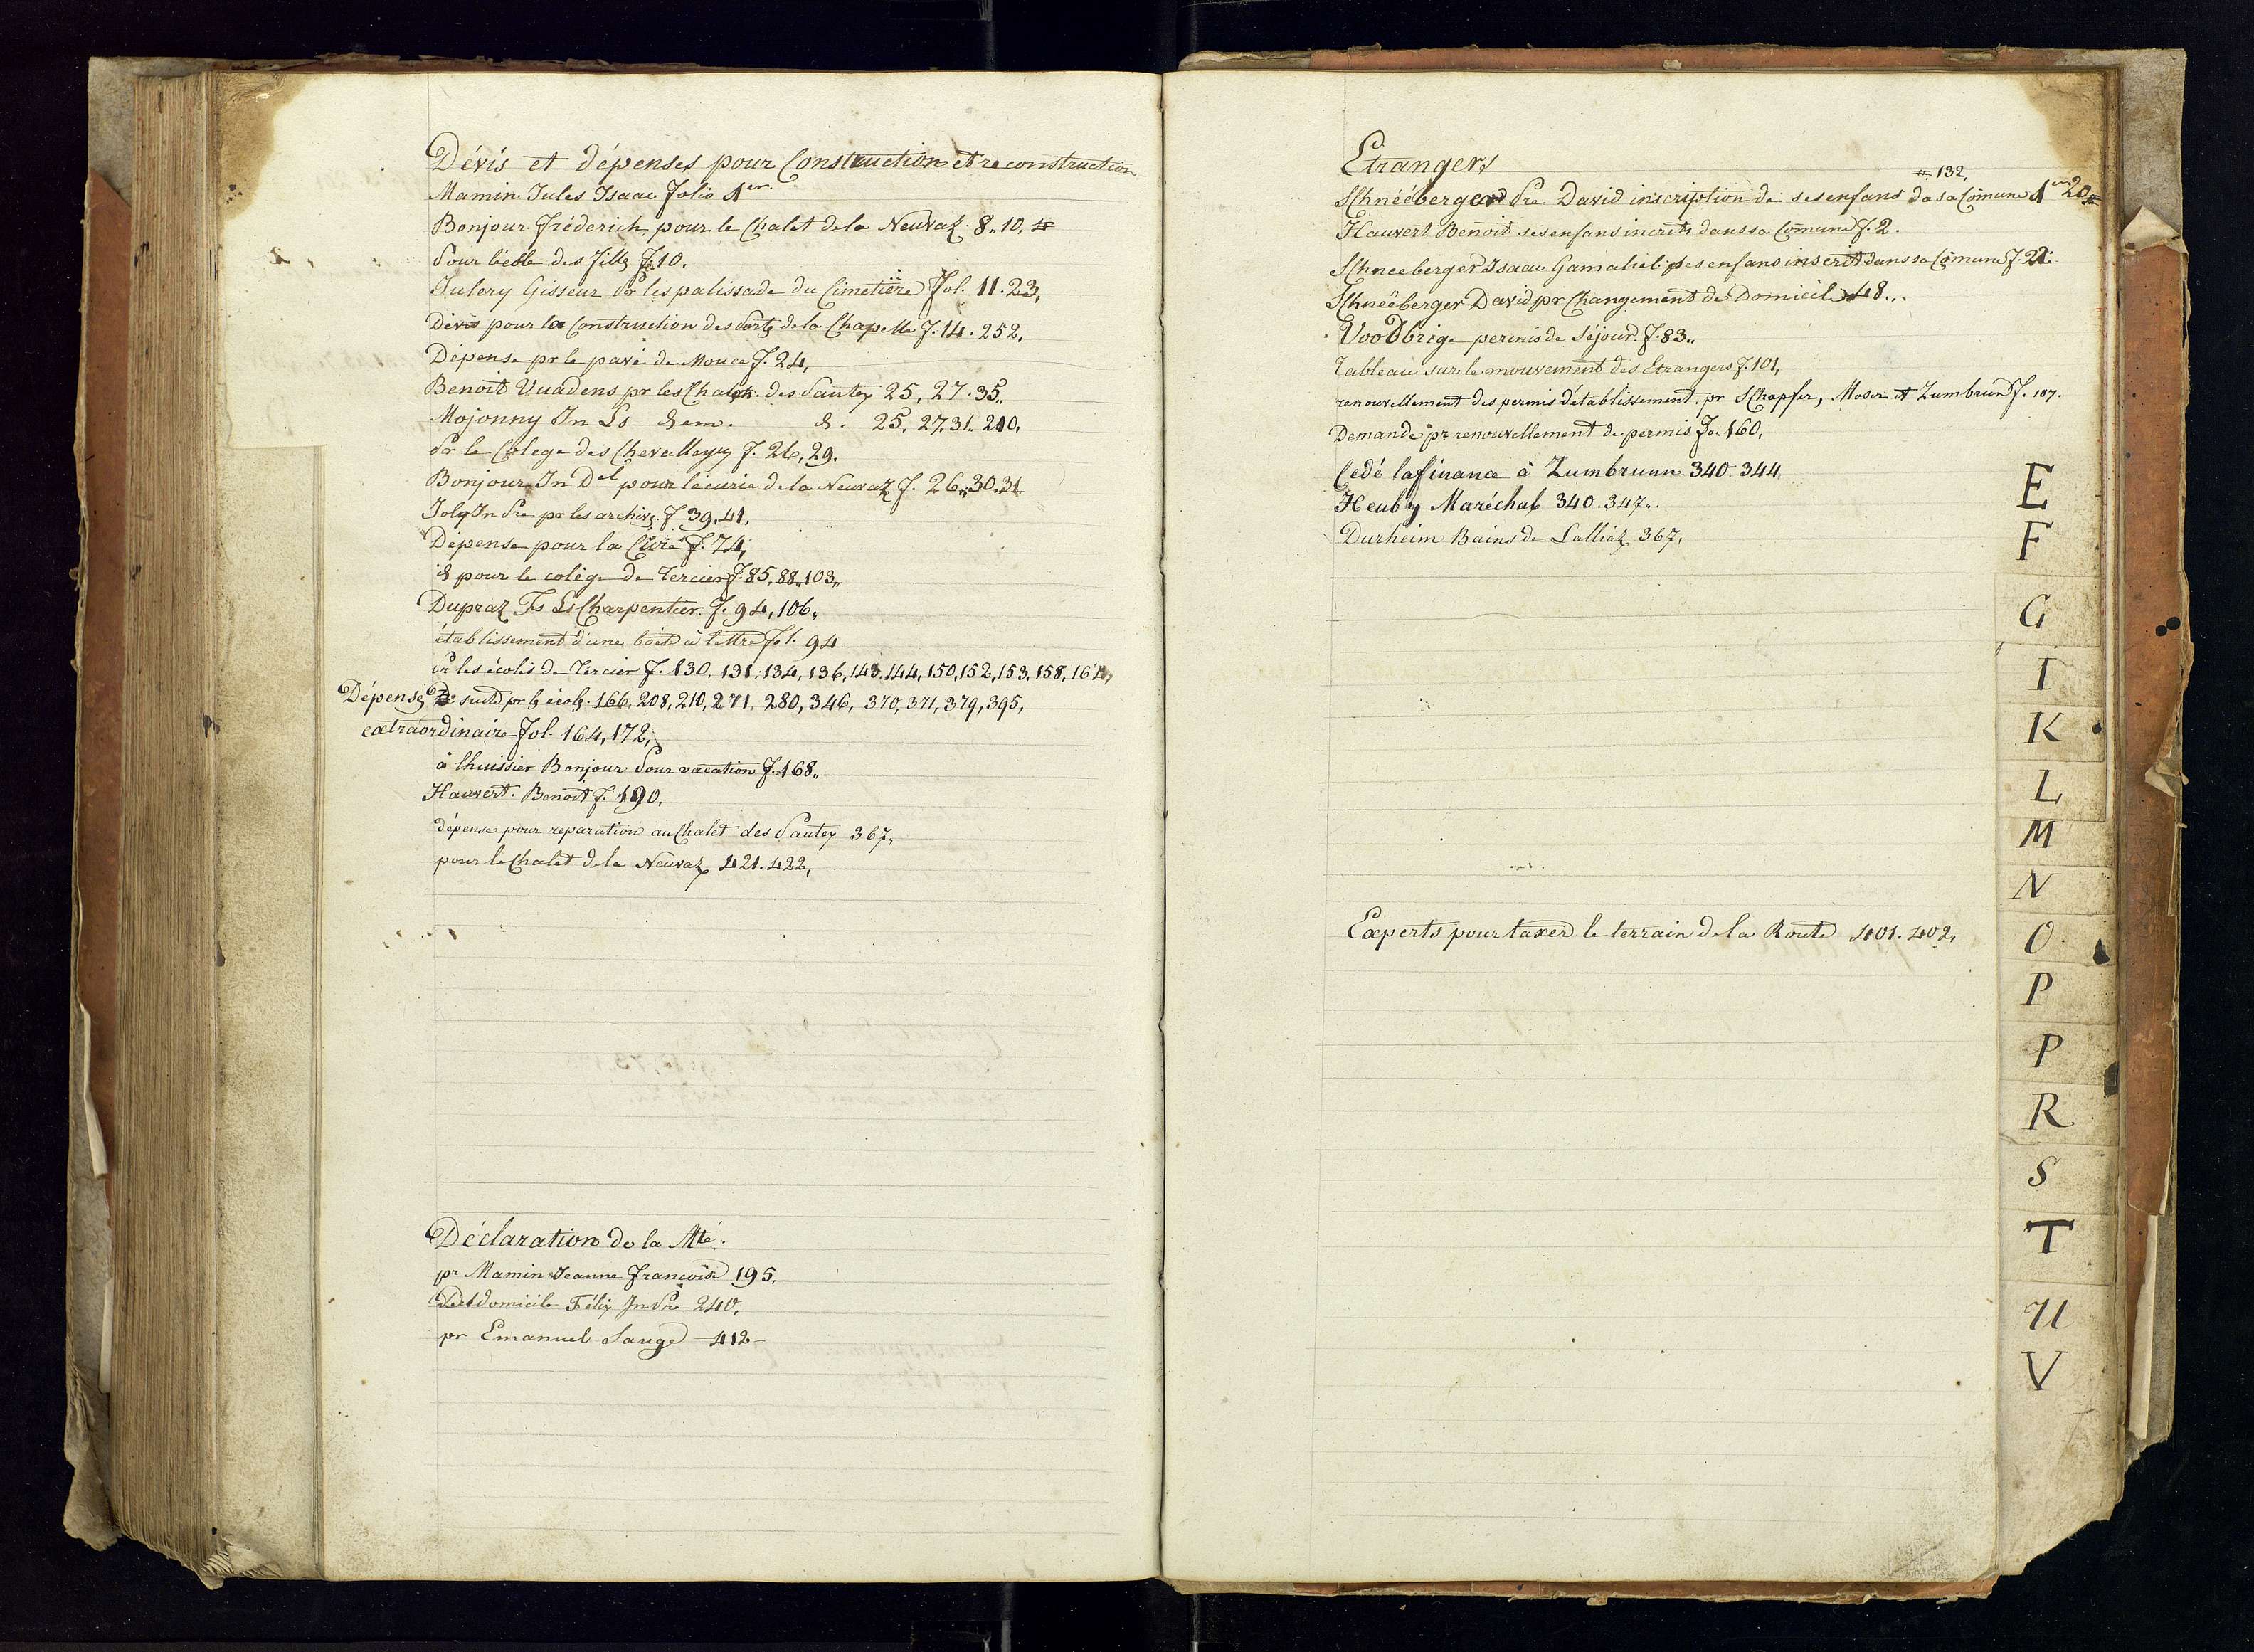 Dévis et dépenses pour Construction et reconstruction
Mamin Jules Isaac folio 1er.
Bonjour fréderich pour le Chalet de la Neuvaz. 8,, 10, #
Pour l'école des fills f. 10.
Gisseur Pr les palissade du Cimetière fol. 11. 23,
Devis pour la Construction des Ports de la Chapelle f. 14. 252,
Dépense pr le pavé de Mouce f. 24,
Benoit Vuadens pr les Chalets. des Pautex 25, 27. 35,,
Mojonny Jn Ls dem. d. 25. 27. 31. 210,
Pr le Colege des Chevalleyres f. 26, 29.
Bonjour Jn Del pour l'écurie de la Neuvaz f. 26,, 30. 31.
Joly Jn Pre pr les archivs. f 39. 41,
Dépense pour la Cure f. 74,
id pour le colége de Tercier f. 85, 88,, 103,,
Dupraz Fs Ls Charpentier. f. 94, 106,,
établissement d'une boëte à lettre fol. 94
Pr les écoles de Tercier f. 130, 131, 134, 136, 143, 144, 150, 152, 153, 158, 161,
Dépenses De suite pr ls écols. 166, 208, 210, 271, 280, 346, 370, 371, 379, 395,
extraordinaire fol. 164, 172,
à lhuissier Bonjour Pour vacation f. 168,,
Hauvert. Benoit f. 190,
dépense pour reparation au Chalet des Pautex 367,
pour le Chalet de la Neuvaz 421. 422,
Déclaration de la Mté.
pr Mamin Jeanne françoise 195,
De domicile Félix Jn Pre 240,
pr Emanuel Sauge 412-
Etrangers
#. 132,
SChnééberger Pre David inscription de ses enfans da sa Comune 1er 20 #
Hauvert Benoit ses enfans incrits dans sa Comune f. 2.
SChneeberger Isaac Gamaliel ses enfans inscrit dans sa Comune f. 21.
SChnéeberger David pr Changement de Domicile 48...
Voodbrige permis de Séjour. f. 83,,
Tableau sur le mouvement des Etrangers f. 101,
renouvellement des permis d'établissement pr SChopfer, Moser et Zumbrun f. 107.
Demande pr renouvellement de permis fo. 160,
Cedé la finance à Zumbrunn 340. 344,
Heuby Maréchal 340. 347..
Durheim Bains de Lalliaz 367,
Experts pour taxer le terrain de la Route 401. 402,
E
F
G
I
K
L
M
N
O
P
P
R
S
T
U
V